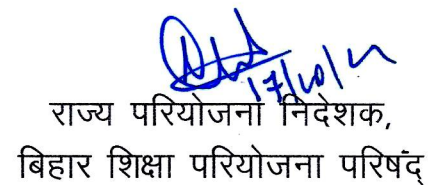 17/10/22
राज्य परियोजना निदेशक,
बिहार शिक्षा परियोजना परिषद्